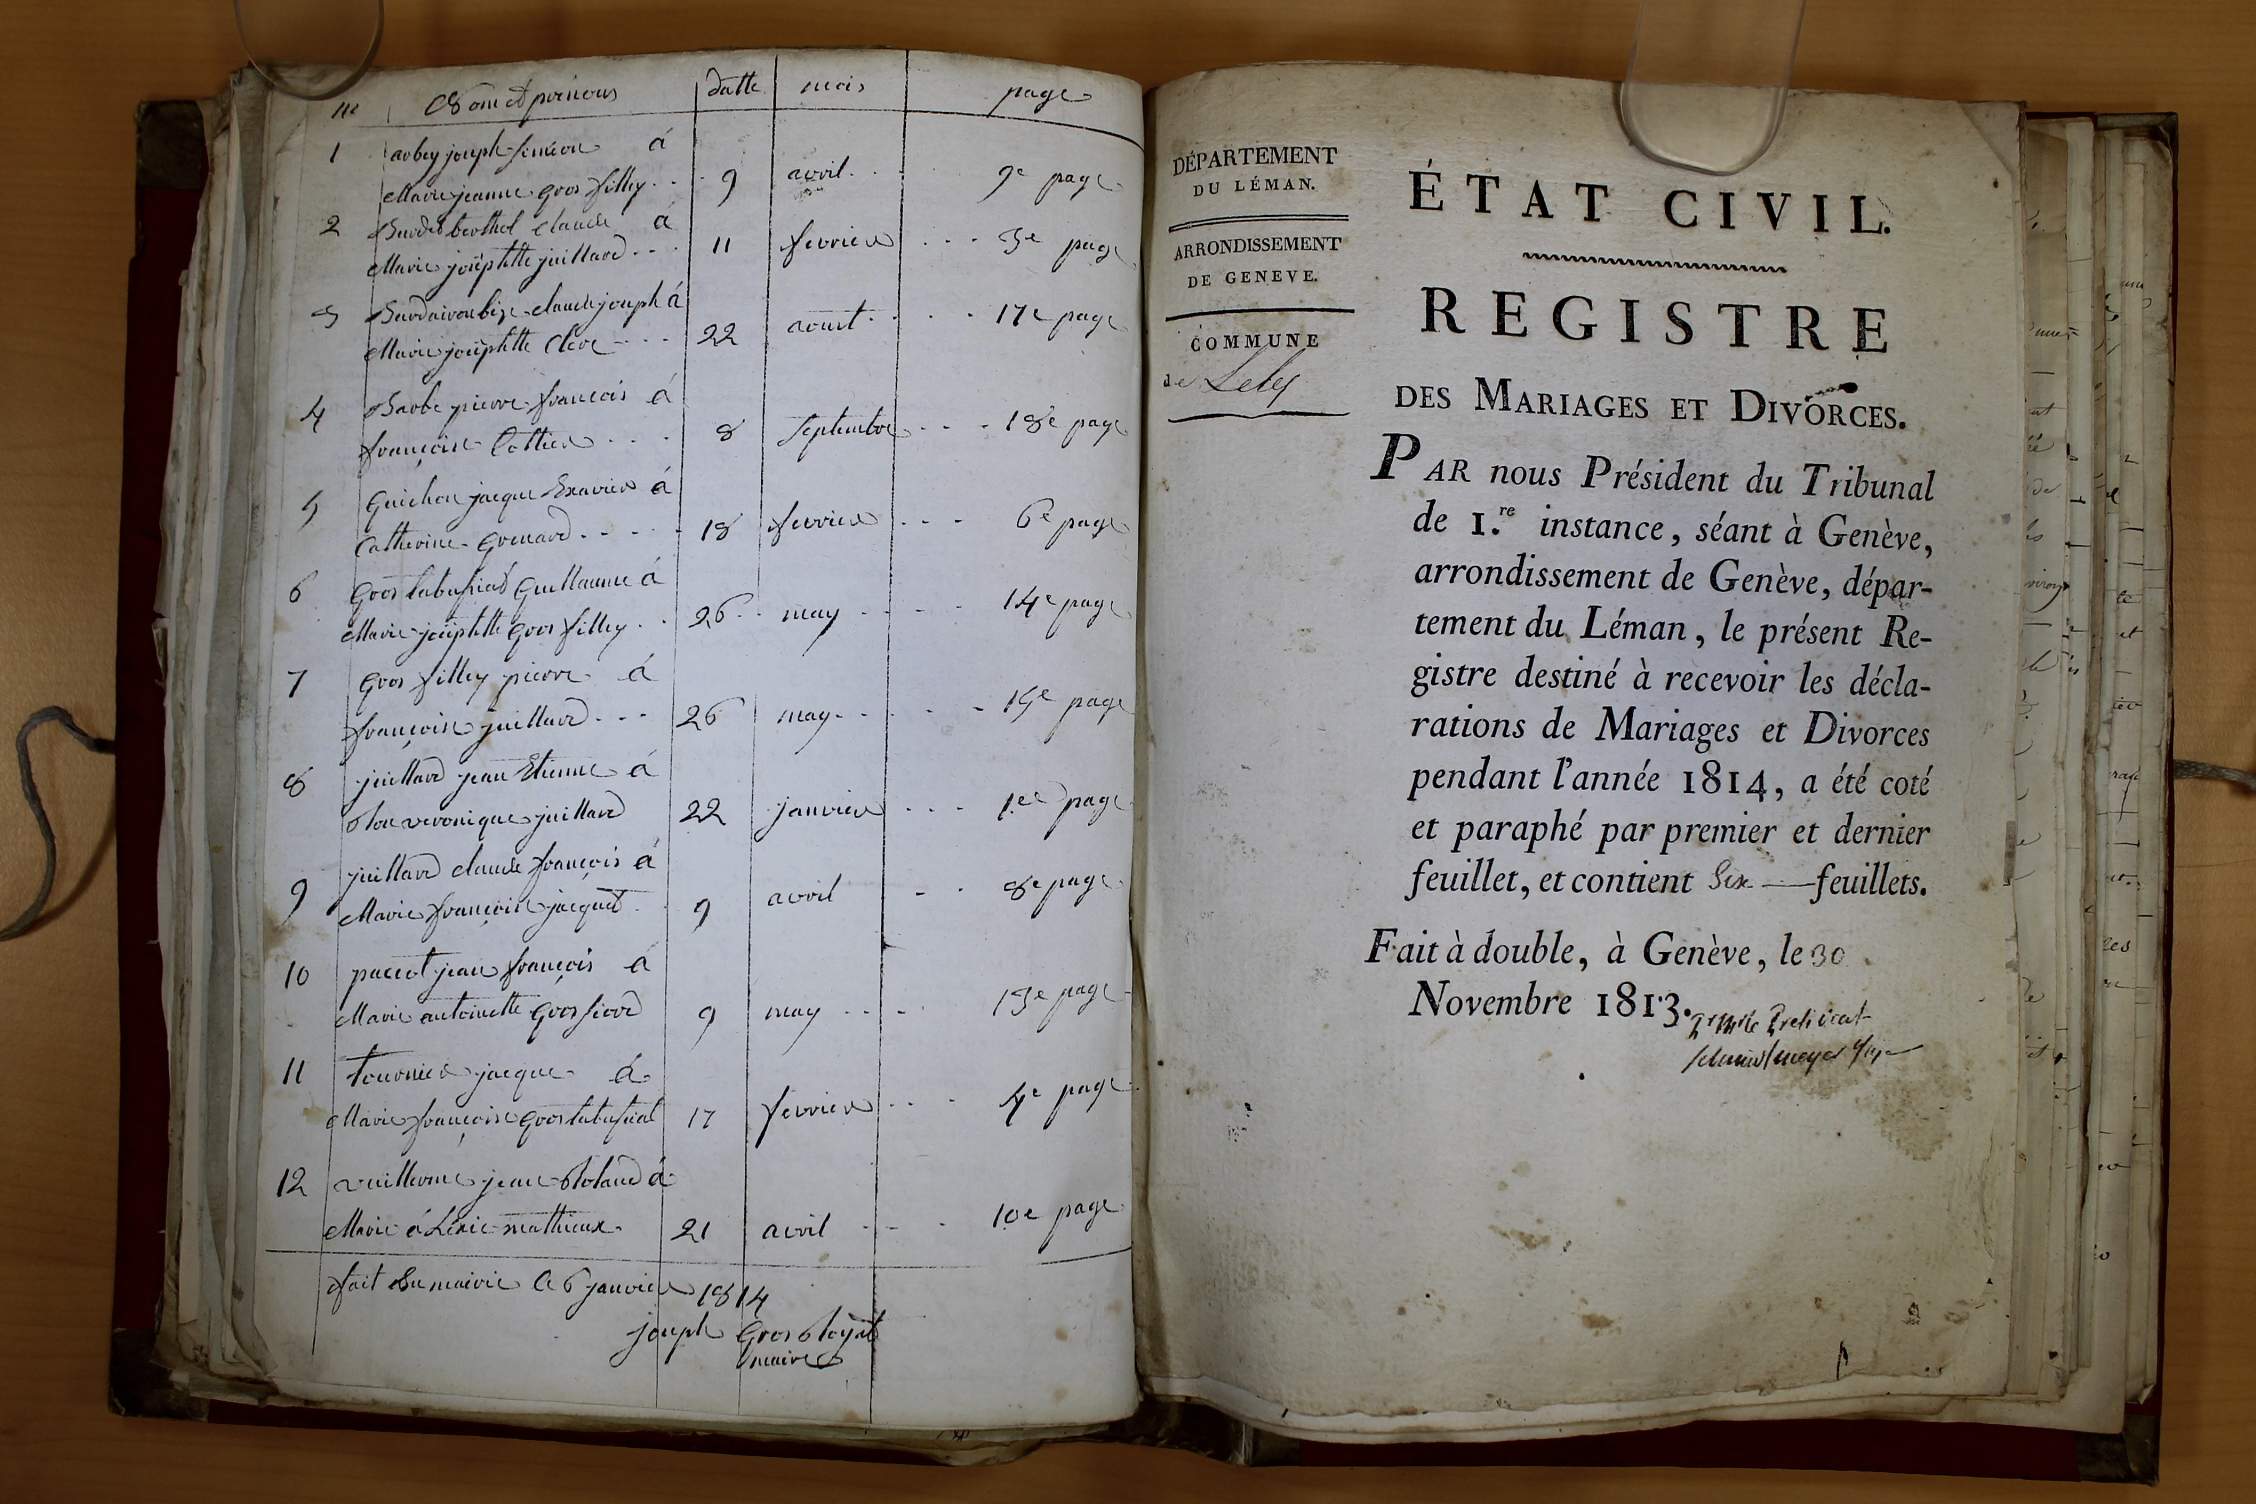 nº Nom et prénoms datte mois page
1 arbey joseph siméon á
Marie jeanne gros fillley 9 avril 9e page
2 berthet claude á
Marie josephtte juillard 11 fevrier 3e page
3 claude joseph á
Marie josephtte 22 aoust 17e page
4 Barbe pierre françois á
françoise Cottier 8 septembre 18e page
5 guichon jacque Exavier á
Catherine grenard 18 fevrier 6e page
6 gros tabussiat guillaume á
Marie josephtte gros filley 26 may 14e page
7 gros filley pierre á
françoise juillard 26 may 15e page
8 juillard jean Etienne á
veronique juillard 22 janvier 1ere page
9 juillard claude françois á
Marie françoise jacquet 9 avril 8e page
10 paccot jean françois á
Marie antoinette gros 9 may 13e page
11 tournier jacque á
Marie françoise gros tabusiat 17 fevrier 4e page
12 vuillerme jean Roland á
Marie mathieux 21 avril 10e page
fait En mairie le 6 janvier 1814
joseph gros
maire
DÉPARTEMENT
DU LÉMAN.
ARRONDISSEMENT
DE GENEVE.
COMMUNE
de Lelex
ÉTAT CIVIL.
REGISTRE
DES MARIAGES ET DIVORCES.
PAR nous Président du Tribunal
de 1.re instance, séant à Genève,
arrondissement de Genève, dépar-
tement du Léman, le présent Re-
gistre destiné à recevoir les décla-
rations de Mariages et Divorces
pendant l'année 1814, a été coté
et paraphé par premier et dernier
feuillet, et contient Six feuillets.
Fait à double, à Genève, le 30
Novembre 1813.